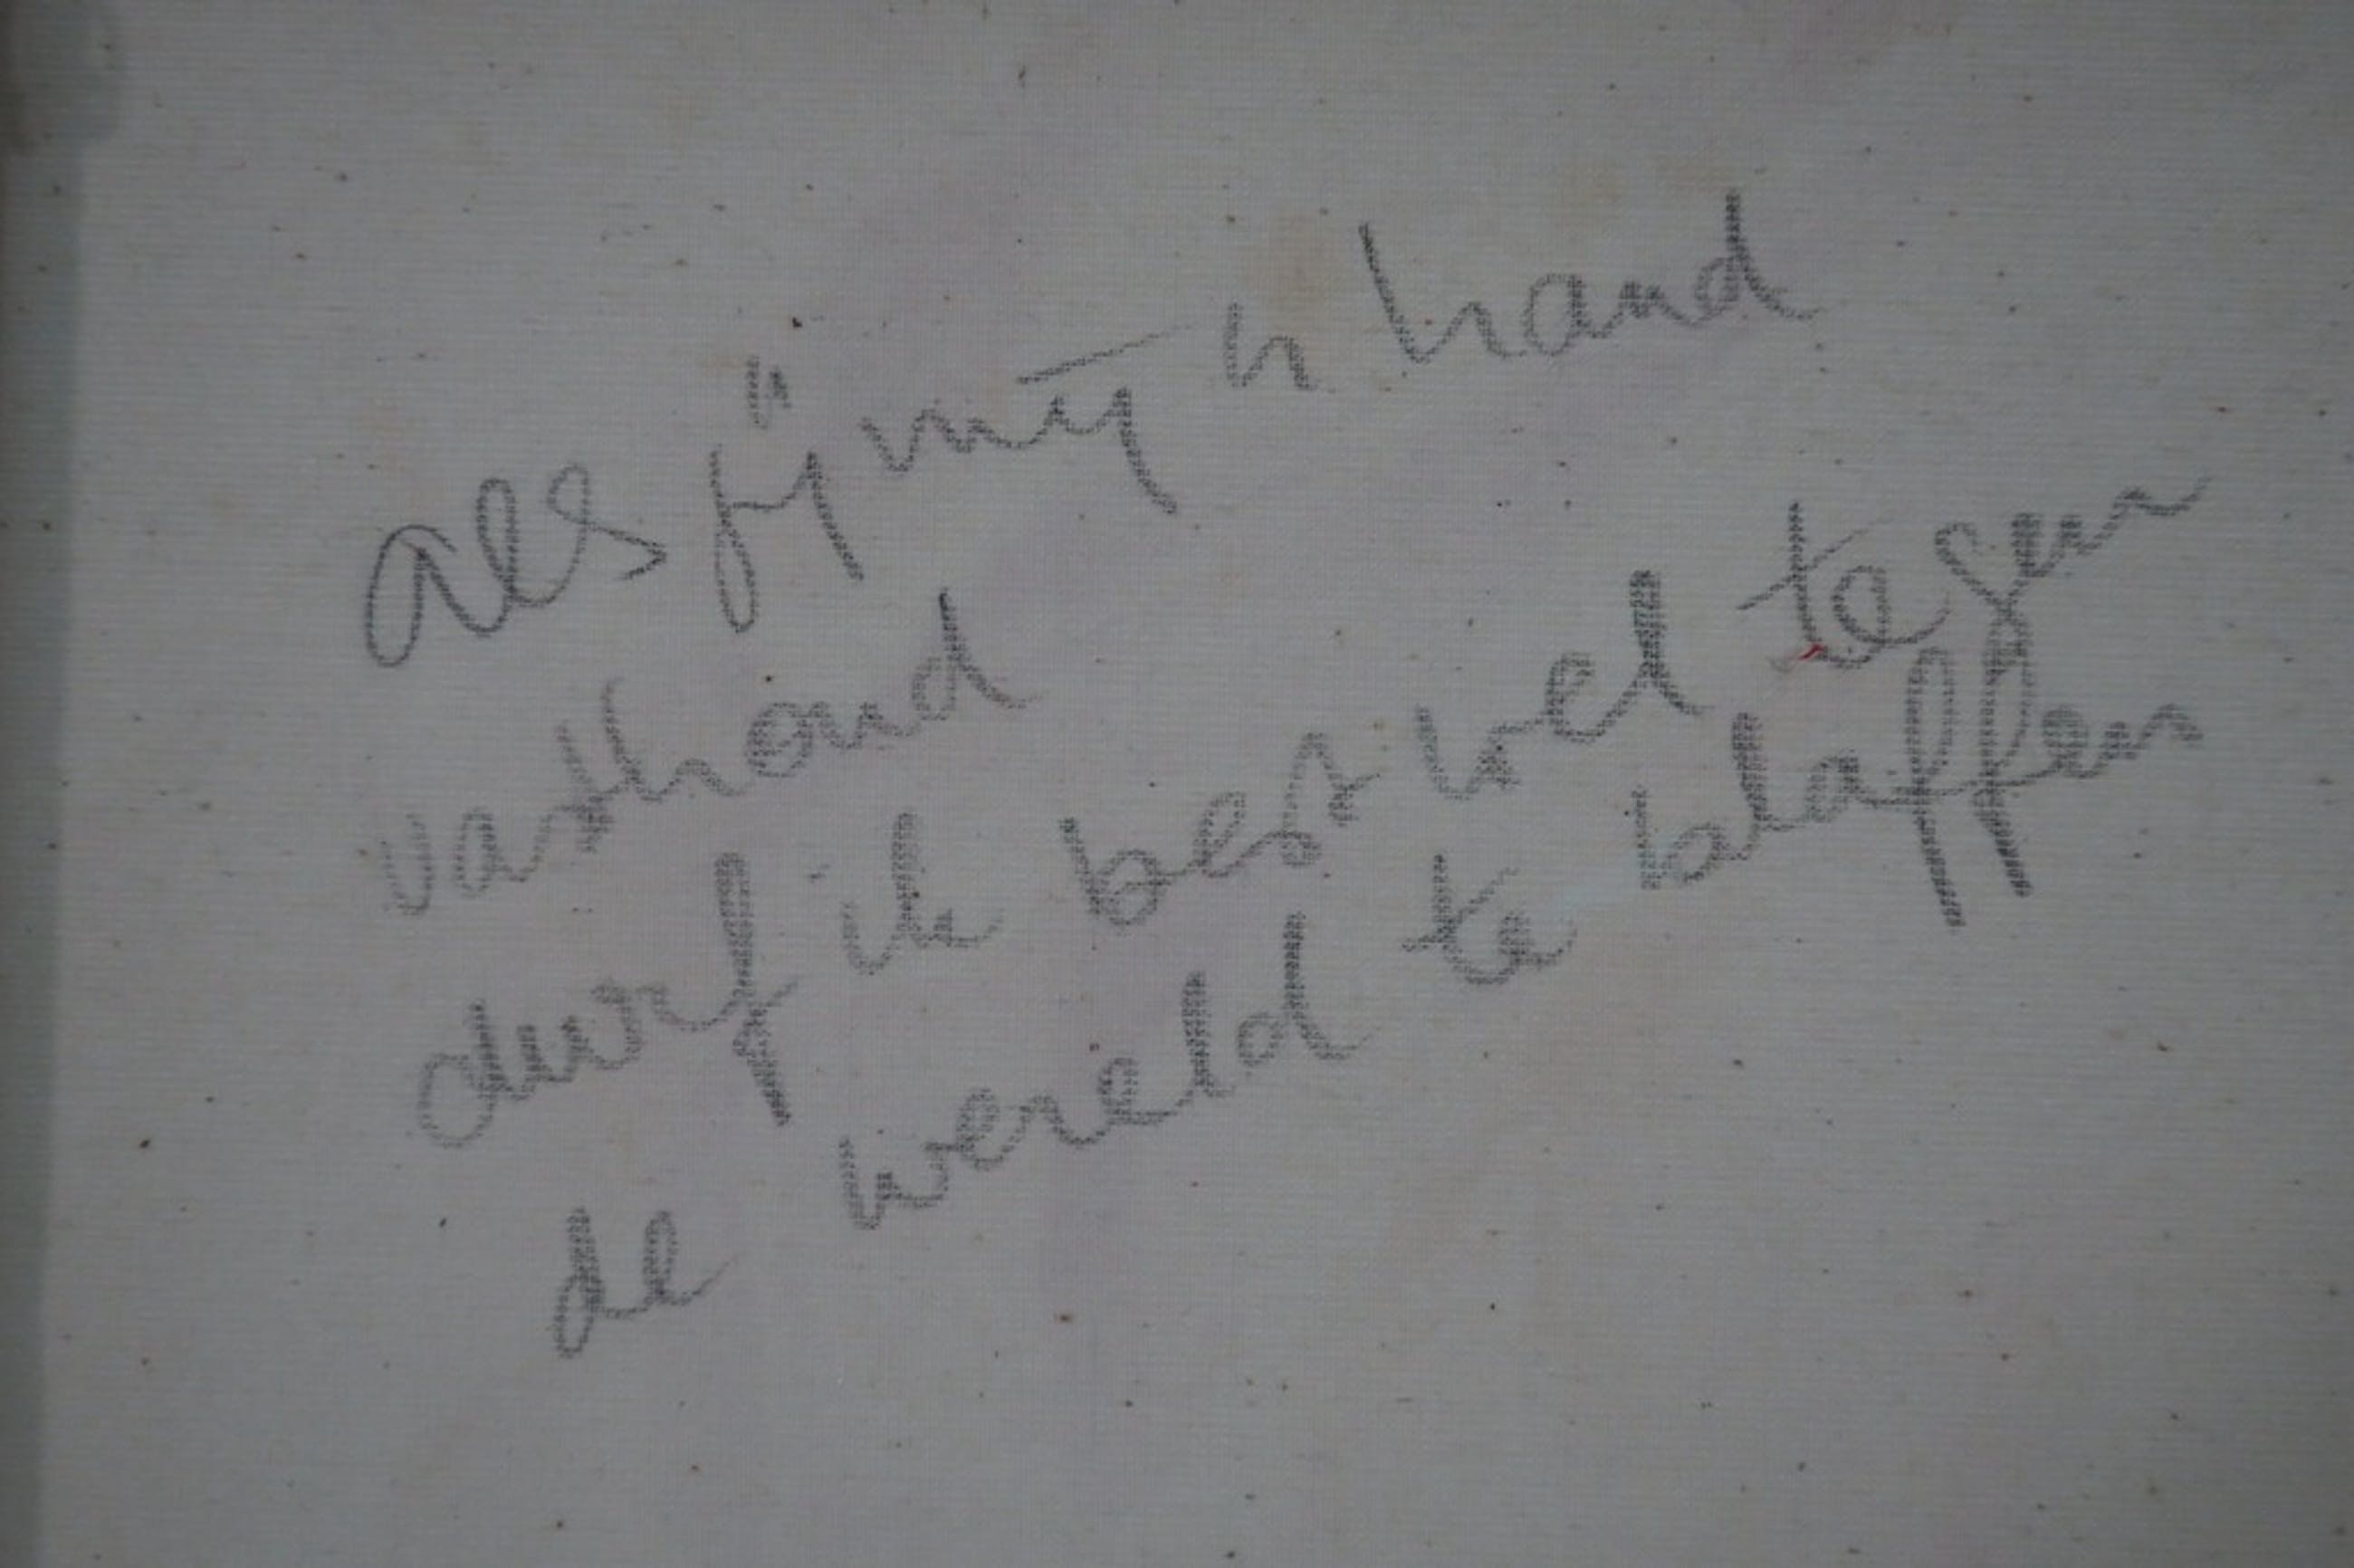 als jij mijn hand
vasthoud
durf ik best wel tegen
de wereld te blaffen